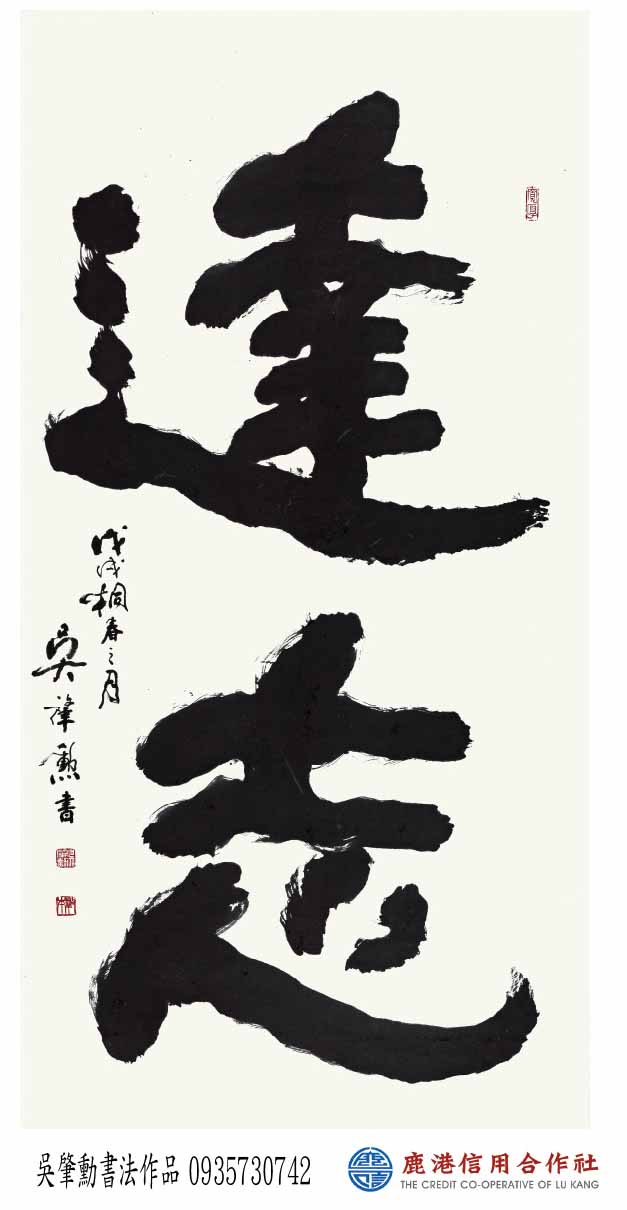 達志
戊戌桐春之月
吳肇勳書
吳肇勳書法作品 0935730742
鹿港信用合作社
THE CREDIT CO-OPERATIVE OF LU KANG